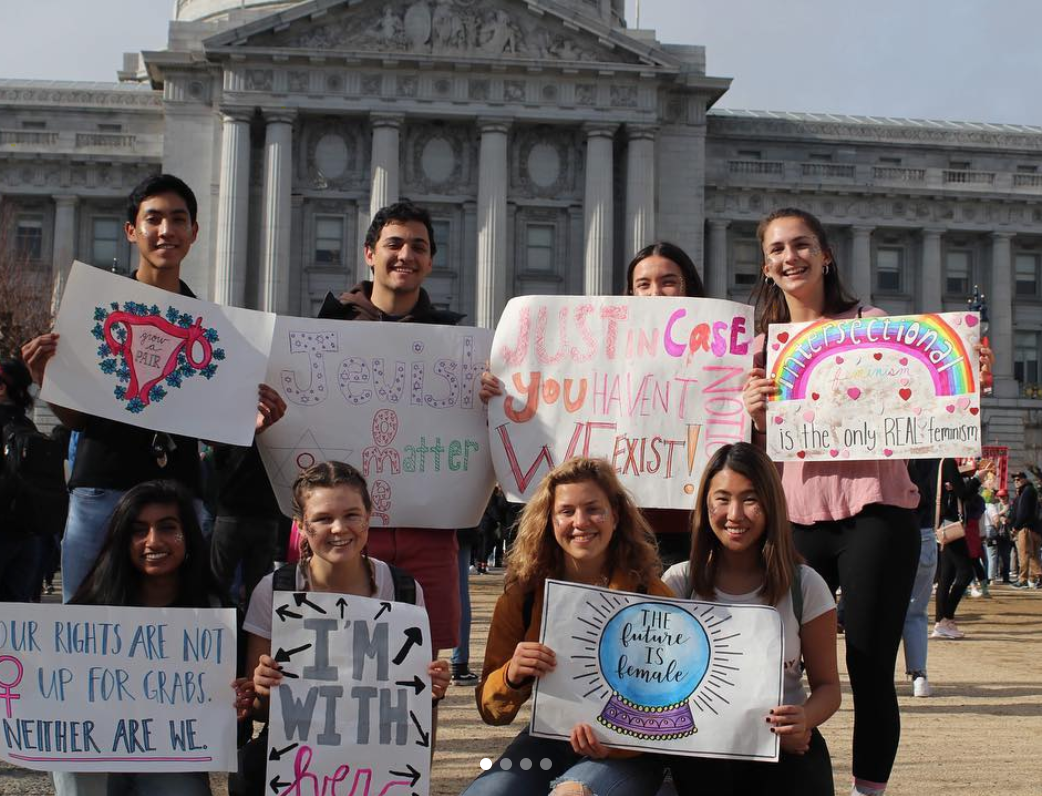 grow
a
PAIR
Jewish
ome
matter
JUST in CASE
YOU HAVEN'T
NOTIC
WE EXIST!
intersectional
feminism
is the only REAL feminism
OUR RIGHTS ARE NOT
UP FOR GRABS.
NEITHER ARE WE.
I'M
WITH
her
THE
future
IS
female